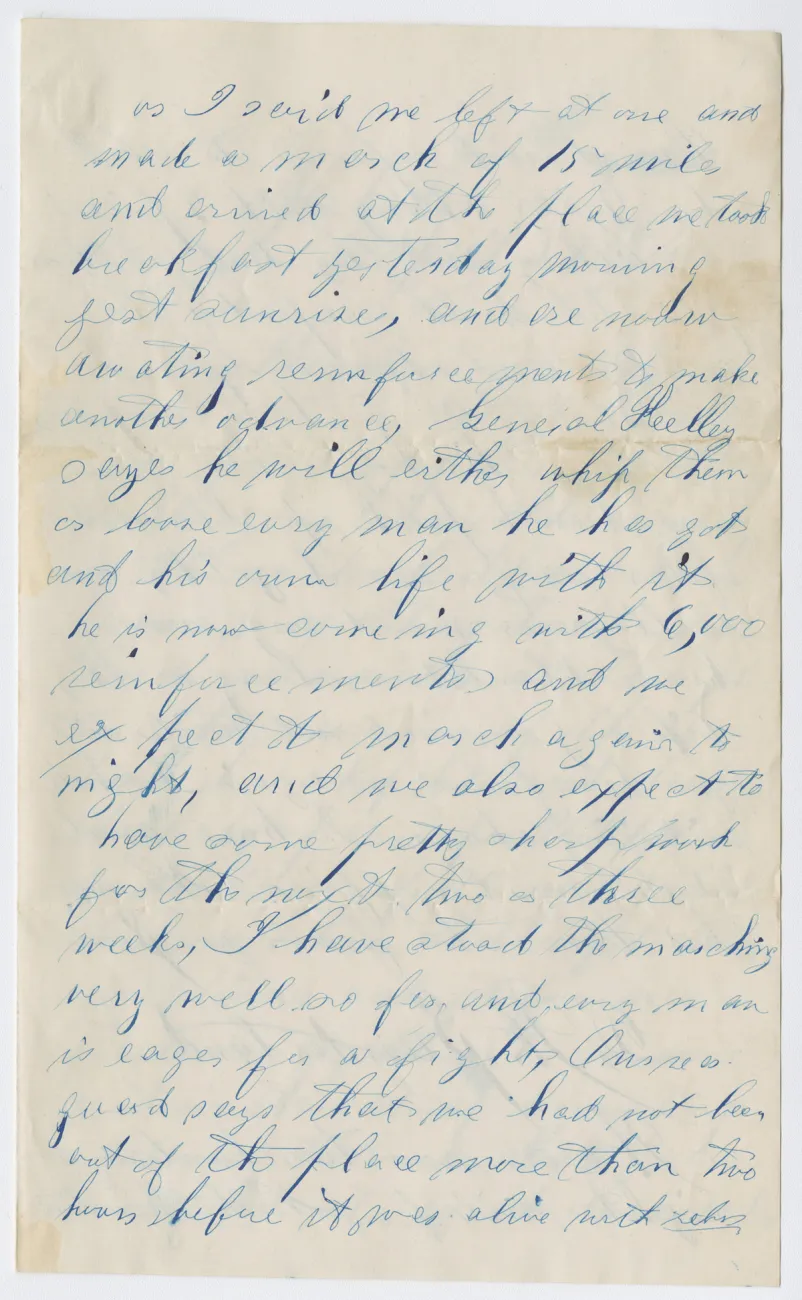 as I said we left at one and
made a march of 15 miles
and arrived at the place we took
breakfast yesterday morning
jest sunrise, and are now
awating reinforceements to make
another advance, General Kelley
sayes he will either whip them
or loose evry man he has got
and his own life with it
he is now comeing with 6,000
reinforceements and we
expect to march again to
night, and we also expect to
have some pretty sharp work
for the next two or three
weeks, I have stood the marching
very well so far, and evry man
is eager for a fight, Our rear
guard says that we had not been
out of the place more than two
hours before it was alive with rebs